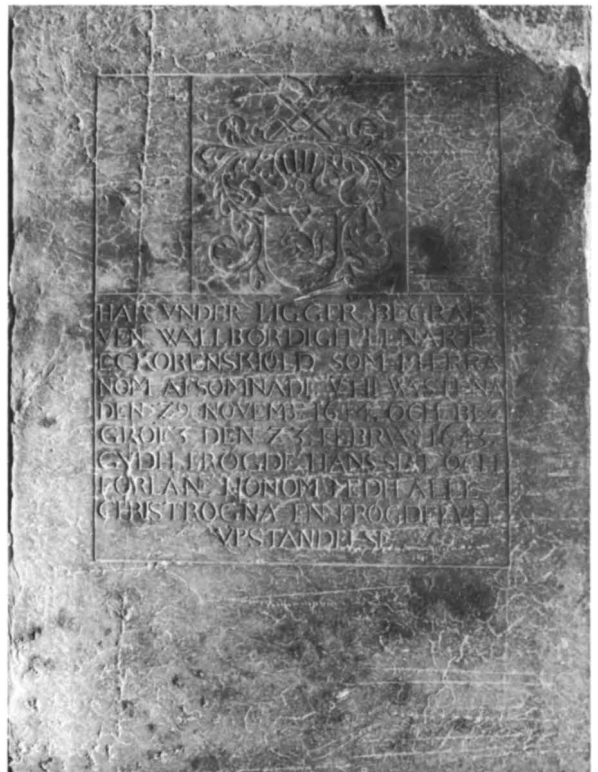 HÄR VNDER LIGGER BEGRAF
VEN WÄLLBÖRDIGH LENART
ECKORENSKIÖLD SOM I HERRA
NOM AFSOMNADE WSTENA
DEN 29 NOVEMB OCH BE
GROFZ DEN 23 FEBRVA
GVDH FRÖGDE HANS SIÄL OCH
FÖRLÄN HONOM MEDH ALLE
CHRISTROGNA EN FRÖGDEFVLL
VPSTANDELSE